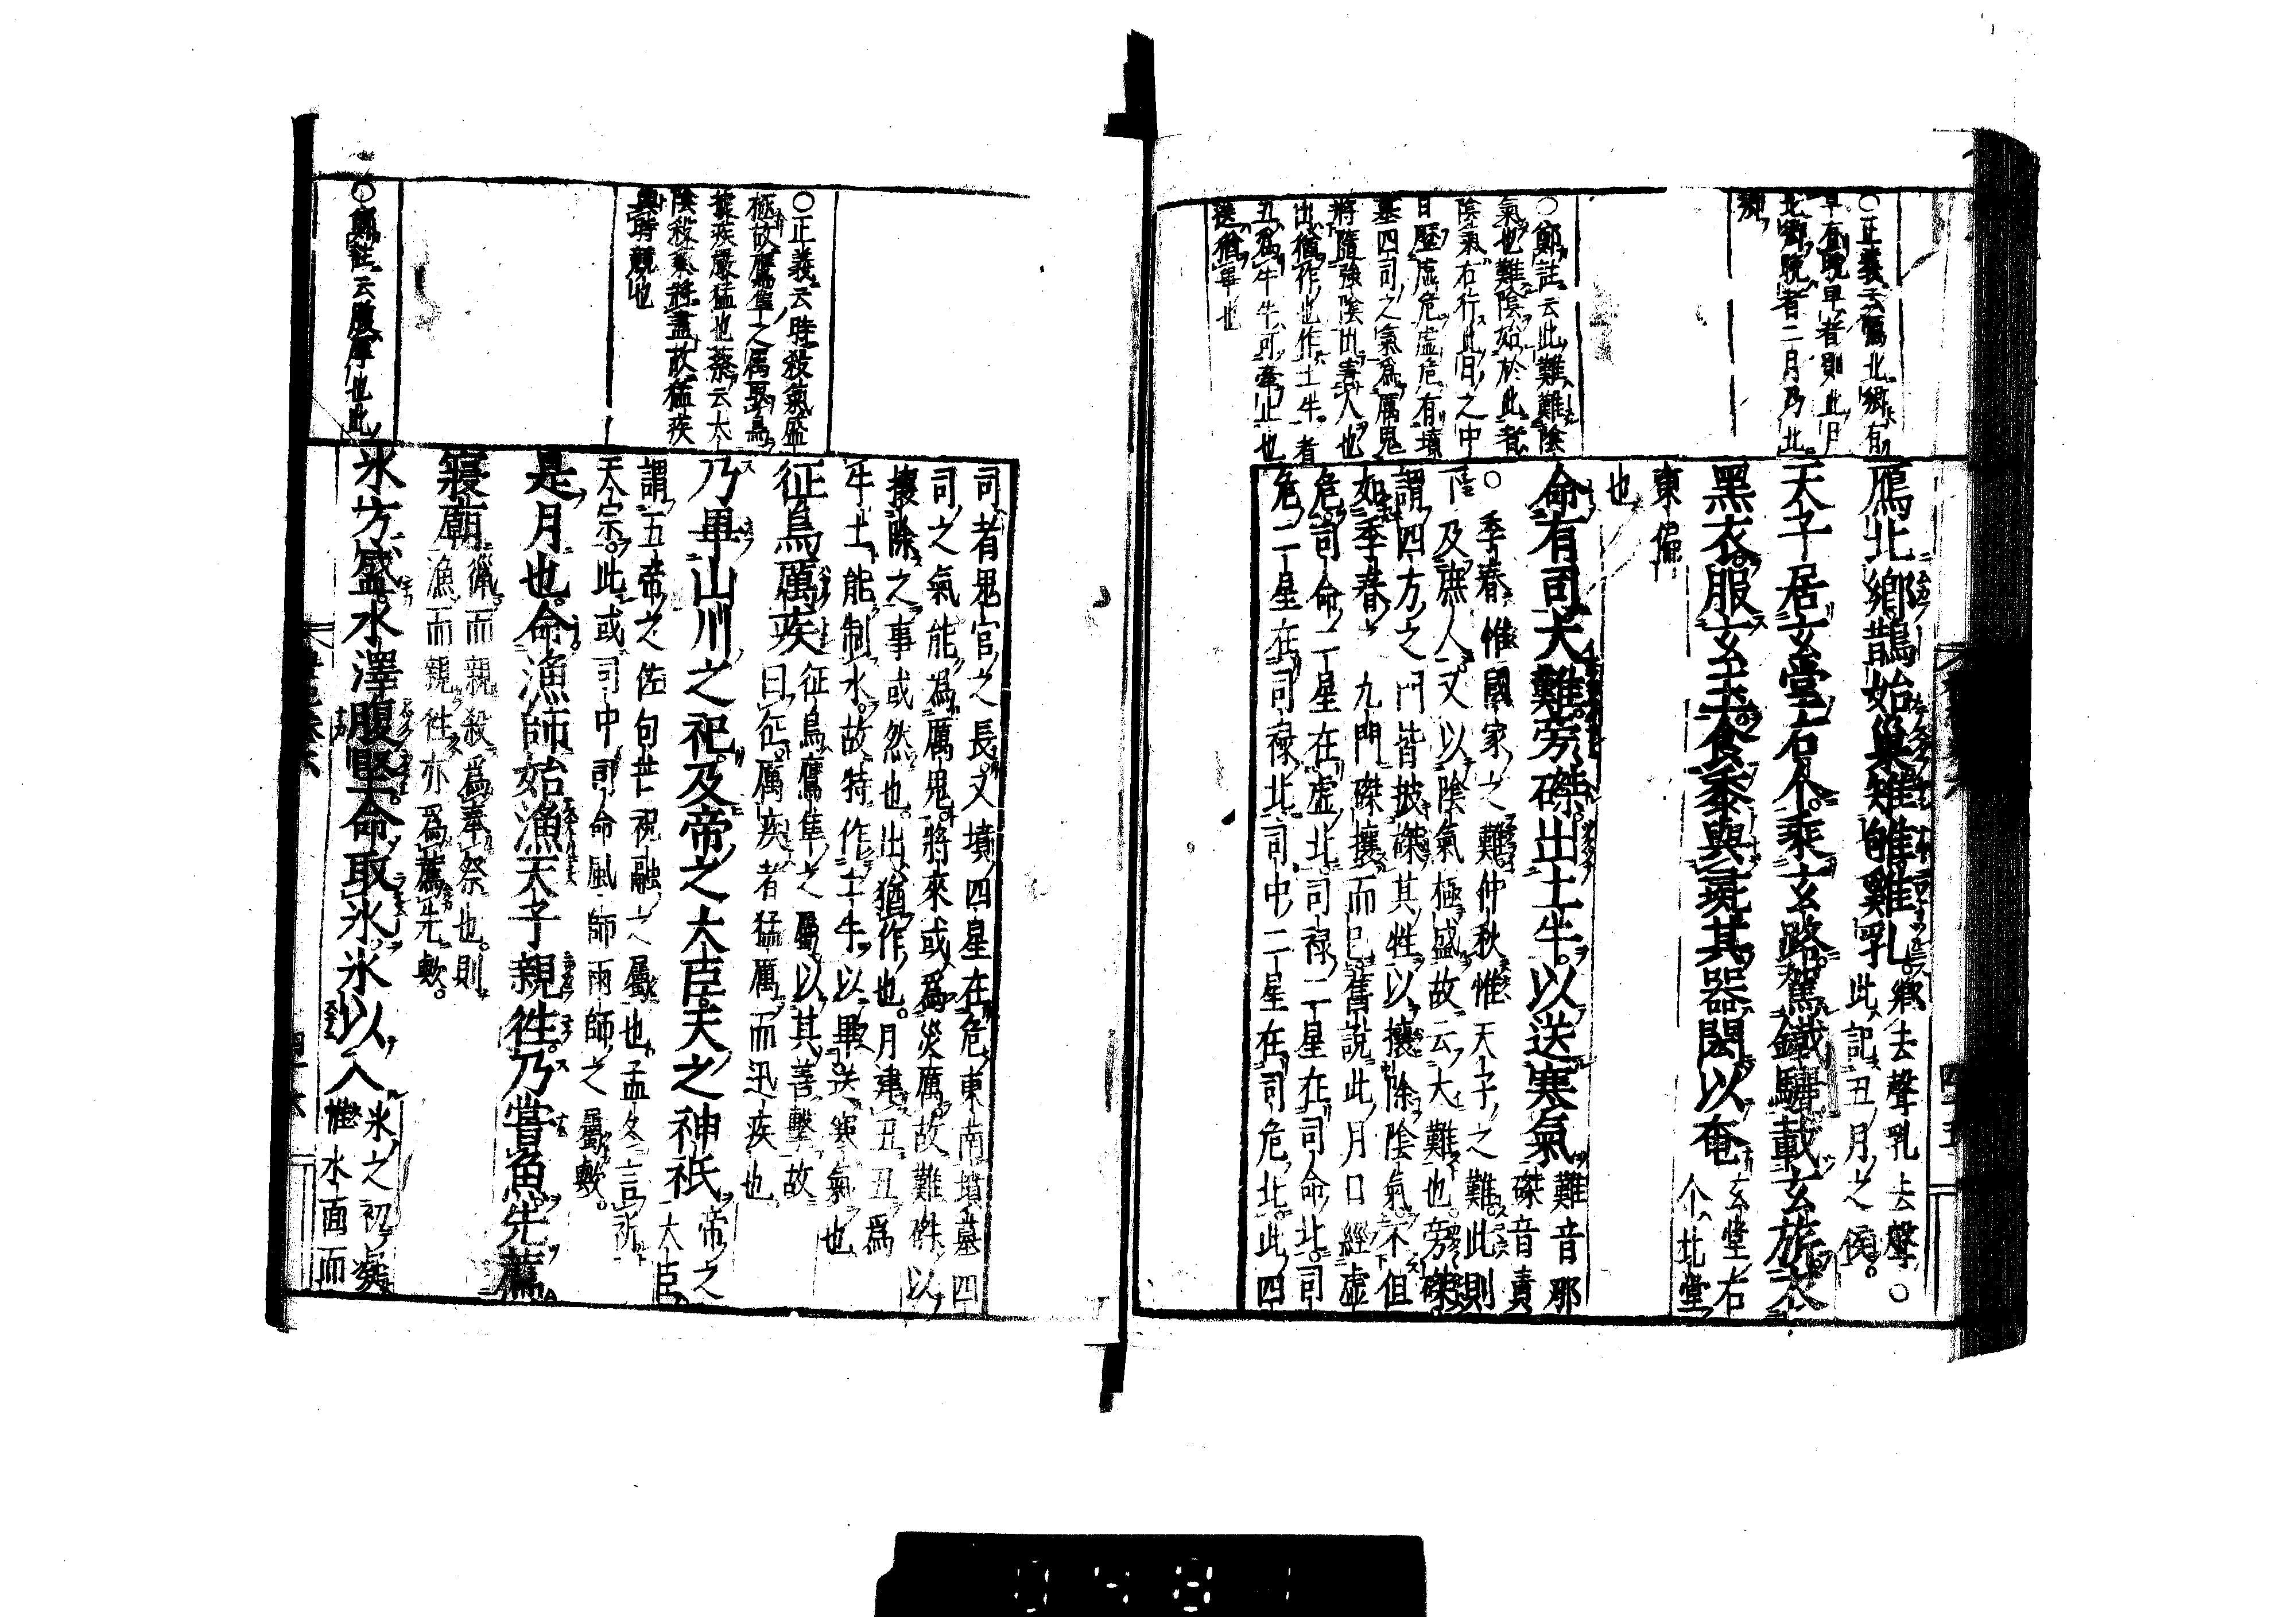 ○正義云鴈北鄉有
早有晚早者則此月
北鄉晚者二月乃北
鄉
○鄭註云此難難陰
氣也難陰始於此者
陰氣右行此月之中
日歷虛危虛危有墳
墓四司之氣爲厲鬼
將隨強陰出害人也
出猶作也作土牛者
丑爲牛牛可牽止也
送猶畢也
鴈北鄉鵲始巢雉雊雞乳
鄉去聲乳去聲○
此記丑月之候
天子居玄堂右个乘玄路駕鐵驪載玄旂衣
黑衣服玄玉食黍與彘其器閎以奄
玄堂右
个北堂
東偏
也
命有司大難旁磔出土牛以送寒氣
難音那
磔音責
○季春惟國家之難仲秋惟天子之難此則
下及庶人又以陰氣極盛故云大難也旁磔
謂四方之門皆披磔其牲以攘除陰氣不但
如季春之九門磔攘而已舊說此月日經虛
危司命二星在虛北司祿二星在司命北司
危二星在司祿北司中二星在司危北此四
○正義云時殺氣盛
極故鷹隼之屬取鳥
捷疾嚴猛也蔡云太
陰殺氣將盡故猛疾
與時競也
○鄭註云腹厚也此
司者鬼官之長又墳四星在危東南墳墓四
司之氣能爲厲鬼將來或爲災厲故難磔以
攘除之事或然也出猶作也月建丑丑爲
牛土能制水故特作土牛以畢送寒氣也
征鳥厲疾
征鳥鷹隼之屬以其善擊故
曰征厲疾者猛厲而迅疾也
乃畢山川之祀及帝之大臣天之神祇
帝之
大臣
謂五帝之佐句芒祝融之屬也孟冬言祈
天宗此或司中司命風師雨師之屬歟
是月也命漁師始漁天子親往乃嘗魚先薦
寢廟
獵而親殺爲奉祭也則
漁而親往亦爲薦先歟
氷方盛水澤腹堅命取氷氷以入
氷之初凝
惟水面而